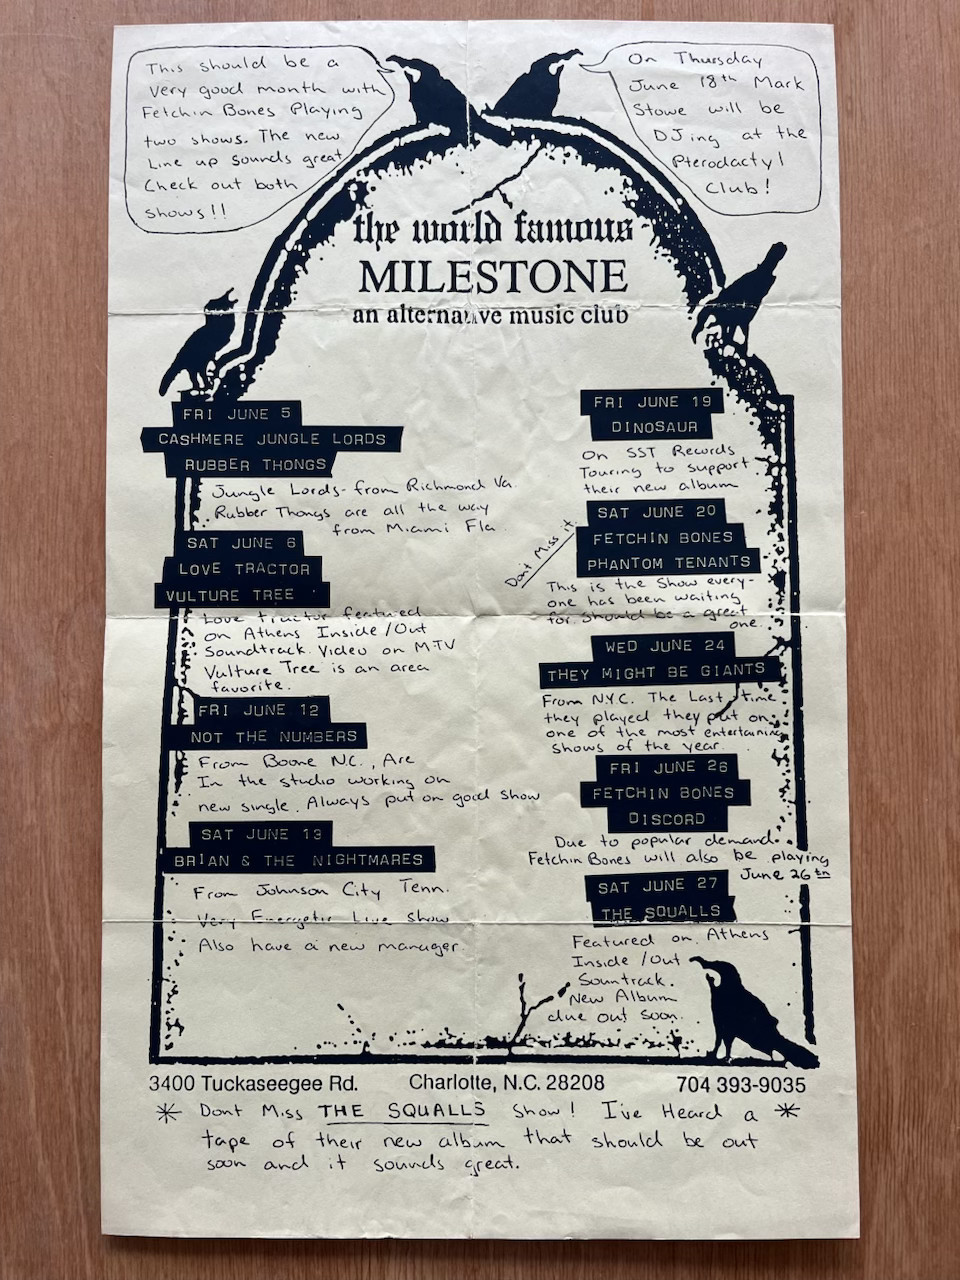 This should be a
very good month with
Fetchin Bones Playing
two shows. The new
Line up sounds great
Check out both
shows!!
On Thursday
June 18th Mark
Stowe will be
DJing at the
Pterodactyl
Club!
the world famous
MILESTONE
an alternative music club
FRI JUNE 5
CASHMERE JUNGLE LORDS
RUBBER THONGS
Jungle Lords - from Richmond Va.
Rubber Thongs are all the way
from Miami Fla.
SAT JUNE 6
LOVE TRACTOR
VULTURE TREE
Love tractor featured
on Athens Inside/Out
Soundtrack. Video on MTV
Vulture Tree is an area
favorite.
FRI JUNE 12
NOT THE NUMBERS
From Boone N.C., Are
In the studio working on
new single. Always put on good show
SAT JUNE 13
BRIAN & THE NIGHTMARES
From Johnson City Tenn.
Very Energetic Live Show
Also have a new manager.
FRI JUNE 19
DINOSAUR
On SST Records
Touring to support
their new album
SAT JUNE 20
FETCHIN BONES
PHANTOM TENANTS
Dont Miss it
This is the Show every-
one has been waiting
for should be a great
one.
WED JUNE 24
THEY MIGHT BE GIANTS
From N.Y.C. The Last time
they played they put on
one of the most entertaining
shows of the year.
FRI JUNE 26
FETCHIN BONES
DISCORD
Due to popular demand
Fetchin Bones will also be playing
June 26th
SAT JUNE 27
THE SQUALLS
Featured on Athens
Inside/Out
Sountrack.
New Album
due out soon.
3400 Tuckaseegee Rd. Charlotte, N.C. 28208 704 393-9035
* Dont Miss THE SQUALLS Show! I've Heard a *
tape of their new album that should be out
soon and it sounds great.